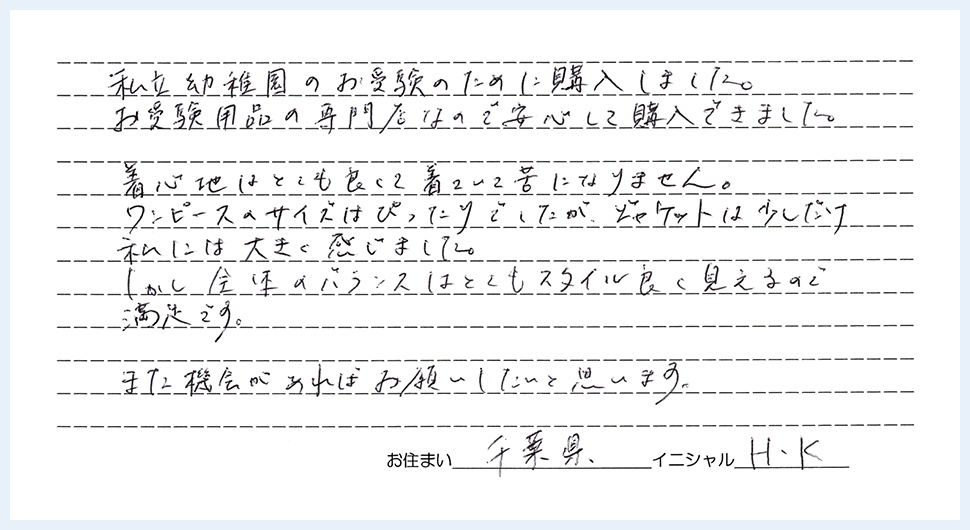 私立幼稚園のお受験のために購入しました。
お受験用品の専門店なので安心して購入できました。
着心地はとても良くて着ていて苦になりません。
ワンピースのサイズはぴったりでしたが、ジャケットは少しだけ
私には大きく感じました。
しかし全体のバランスはとてもスタイル良く見えるので
満足です。
また機会があればお願いしたいと思います。
お住まい 千葉県、 イニシャル H・K